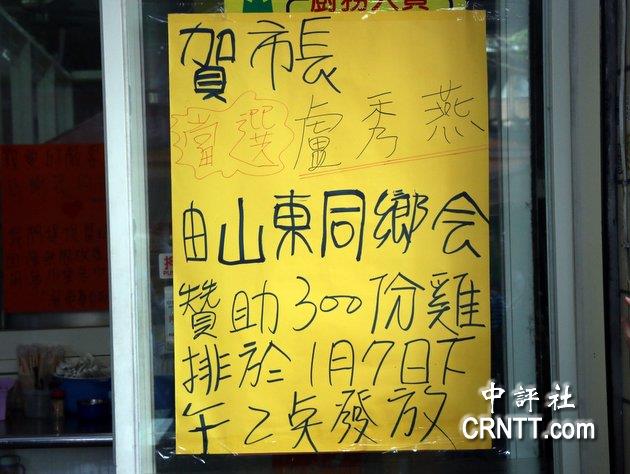 廚務人員
賀市長
當選 盧秀燕
由山東同鄉会
贊助300份雞
排於1月7日下
午2点發放
中評社
CRNTT.com